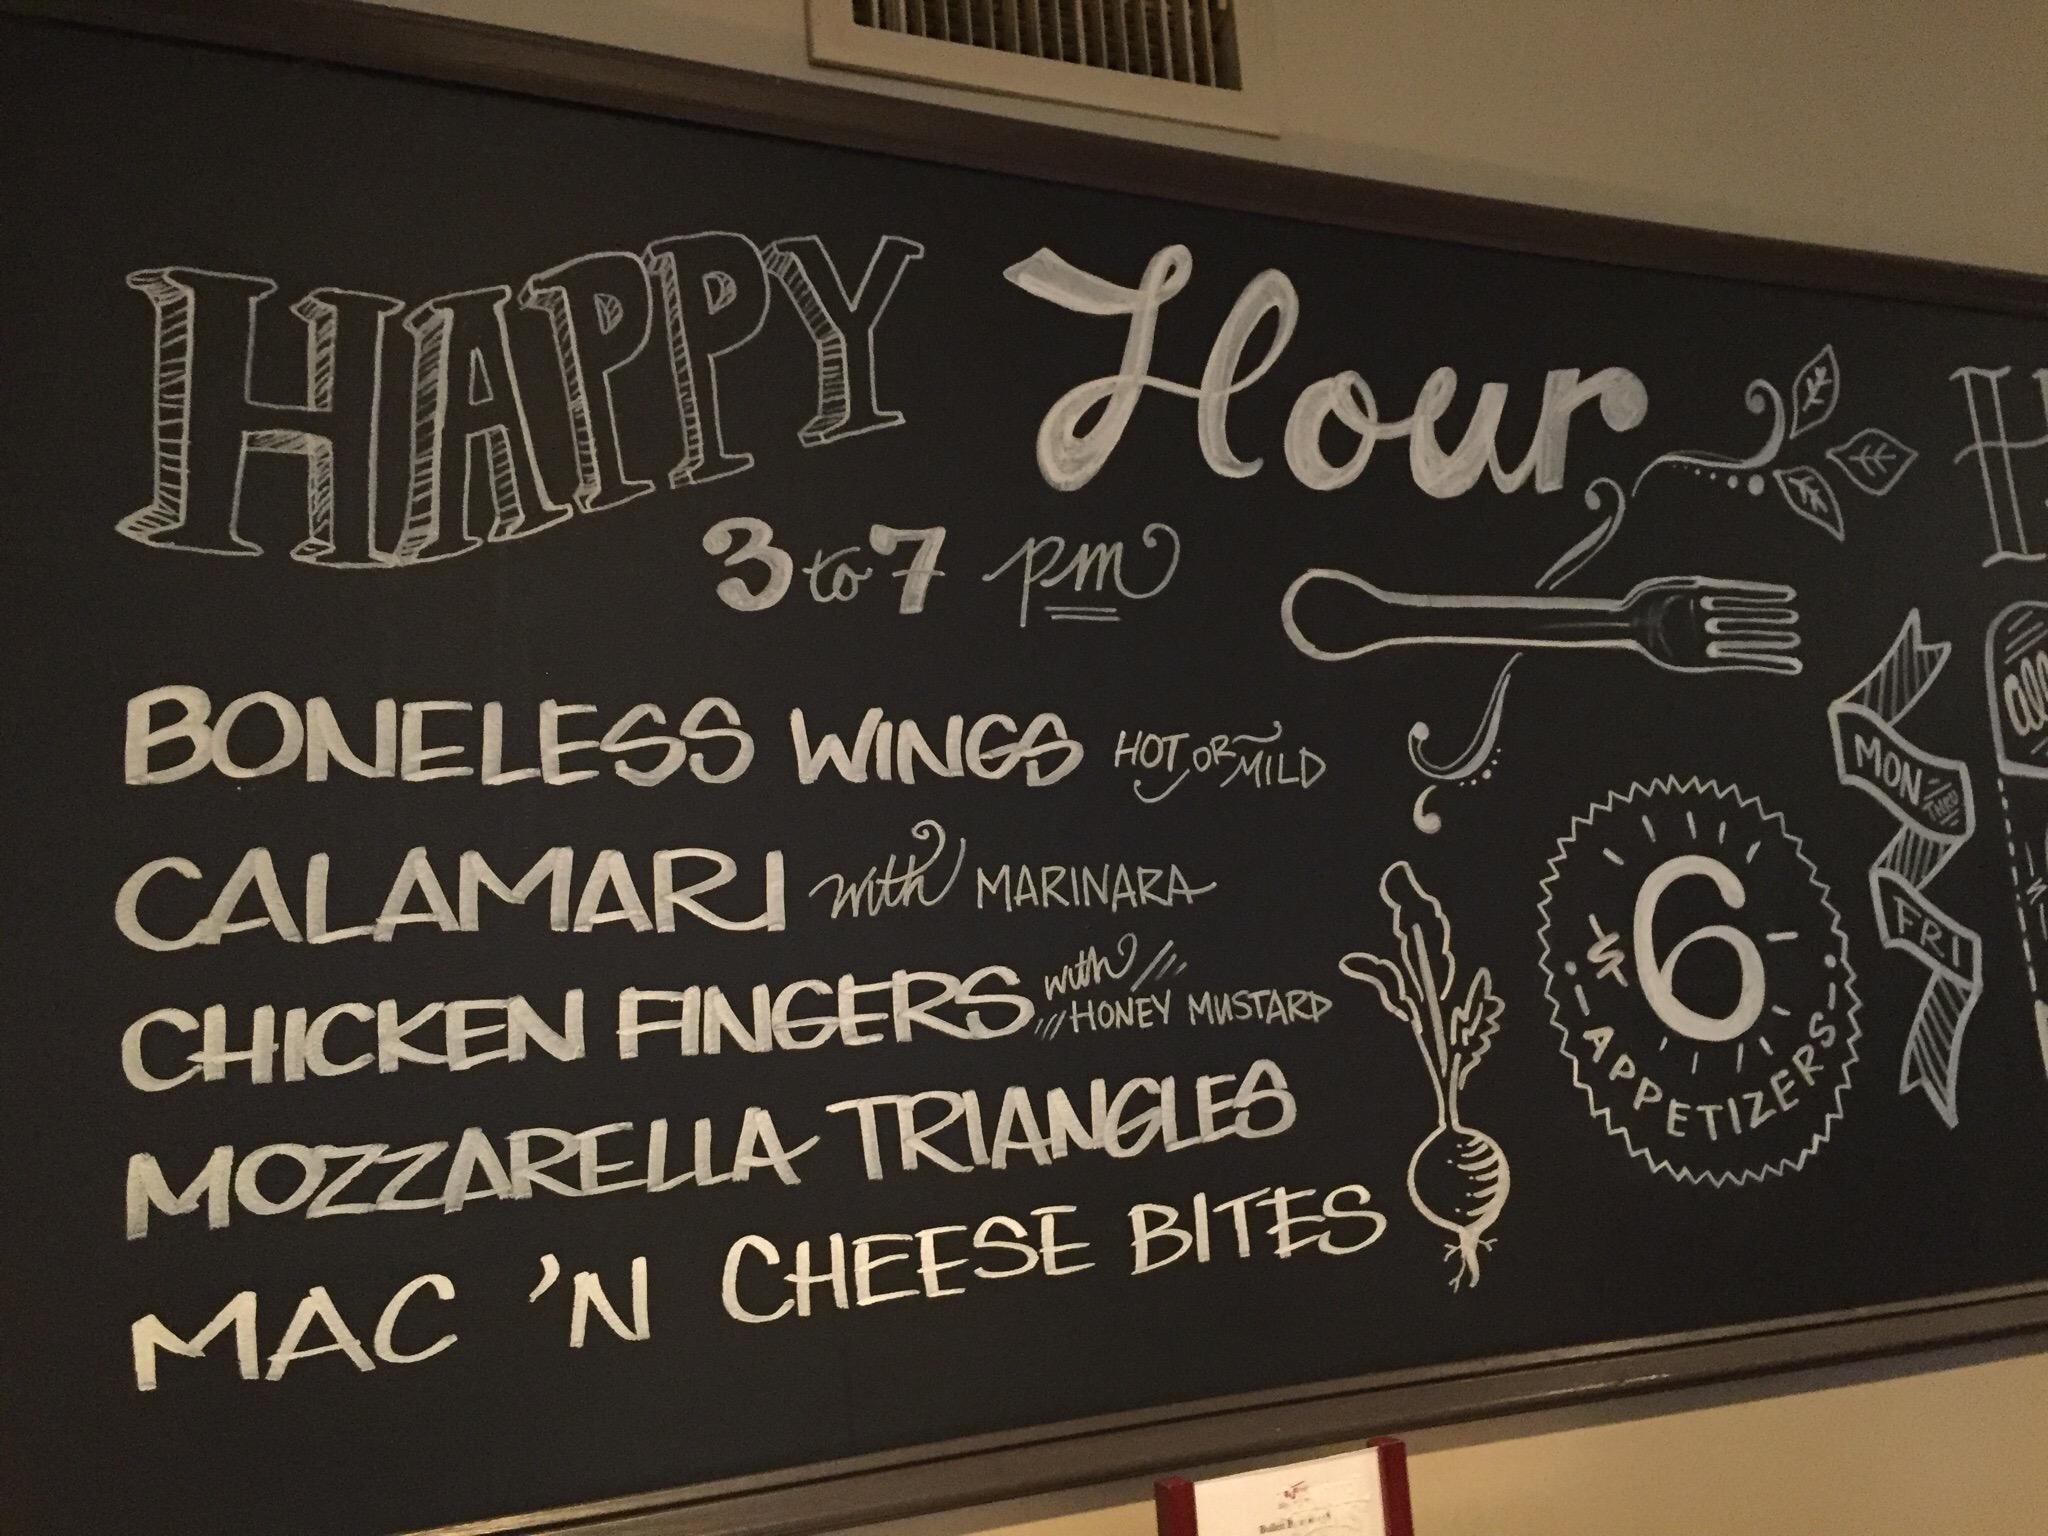 HAPPY Hour
3 to 7 pm
BONELESS WINGS HOT OR MILD
CALAMARI with MARINARA
CHICKEN FINGERS with HONEY MUSTARD
MOZZARELLA TRIANGLES
MAC 'N CHEESE BITES
$6
APPETIZERS
MON THRU
FRI
all